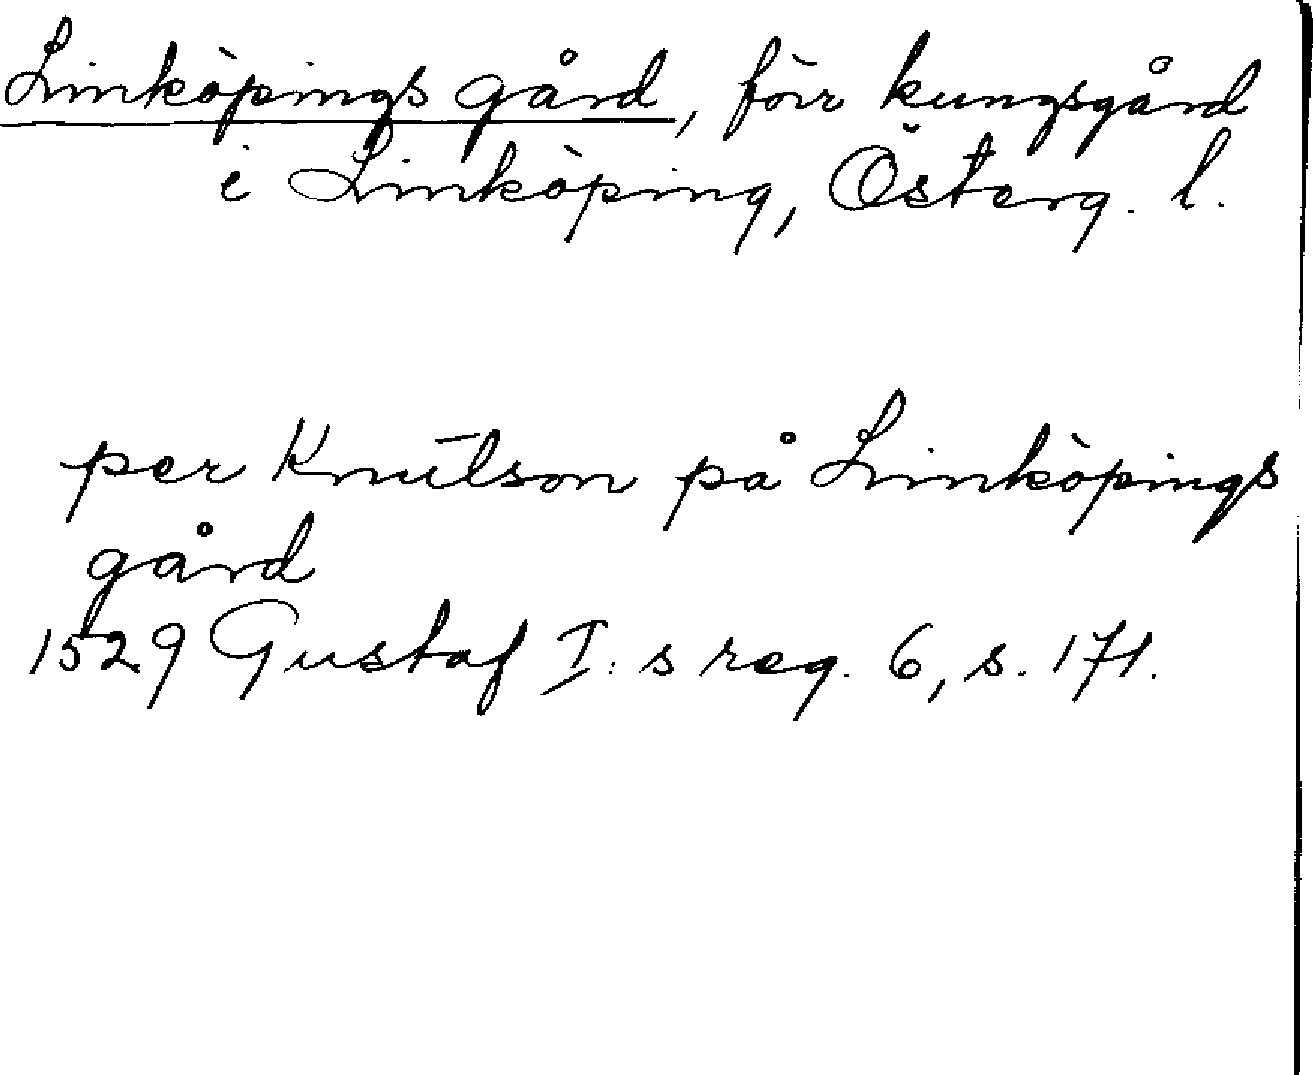 Linköpings gård, förr kungsgård
i Linköping, Österg. l.
per Knutson på Linköpings
gård
1529 Gustaf I:s reg. 6, s. 171.